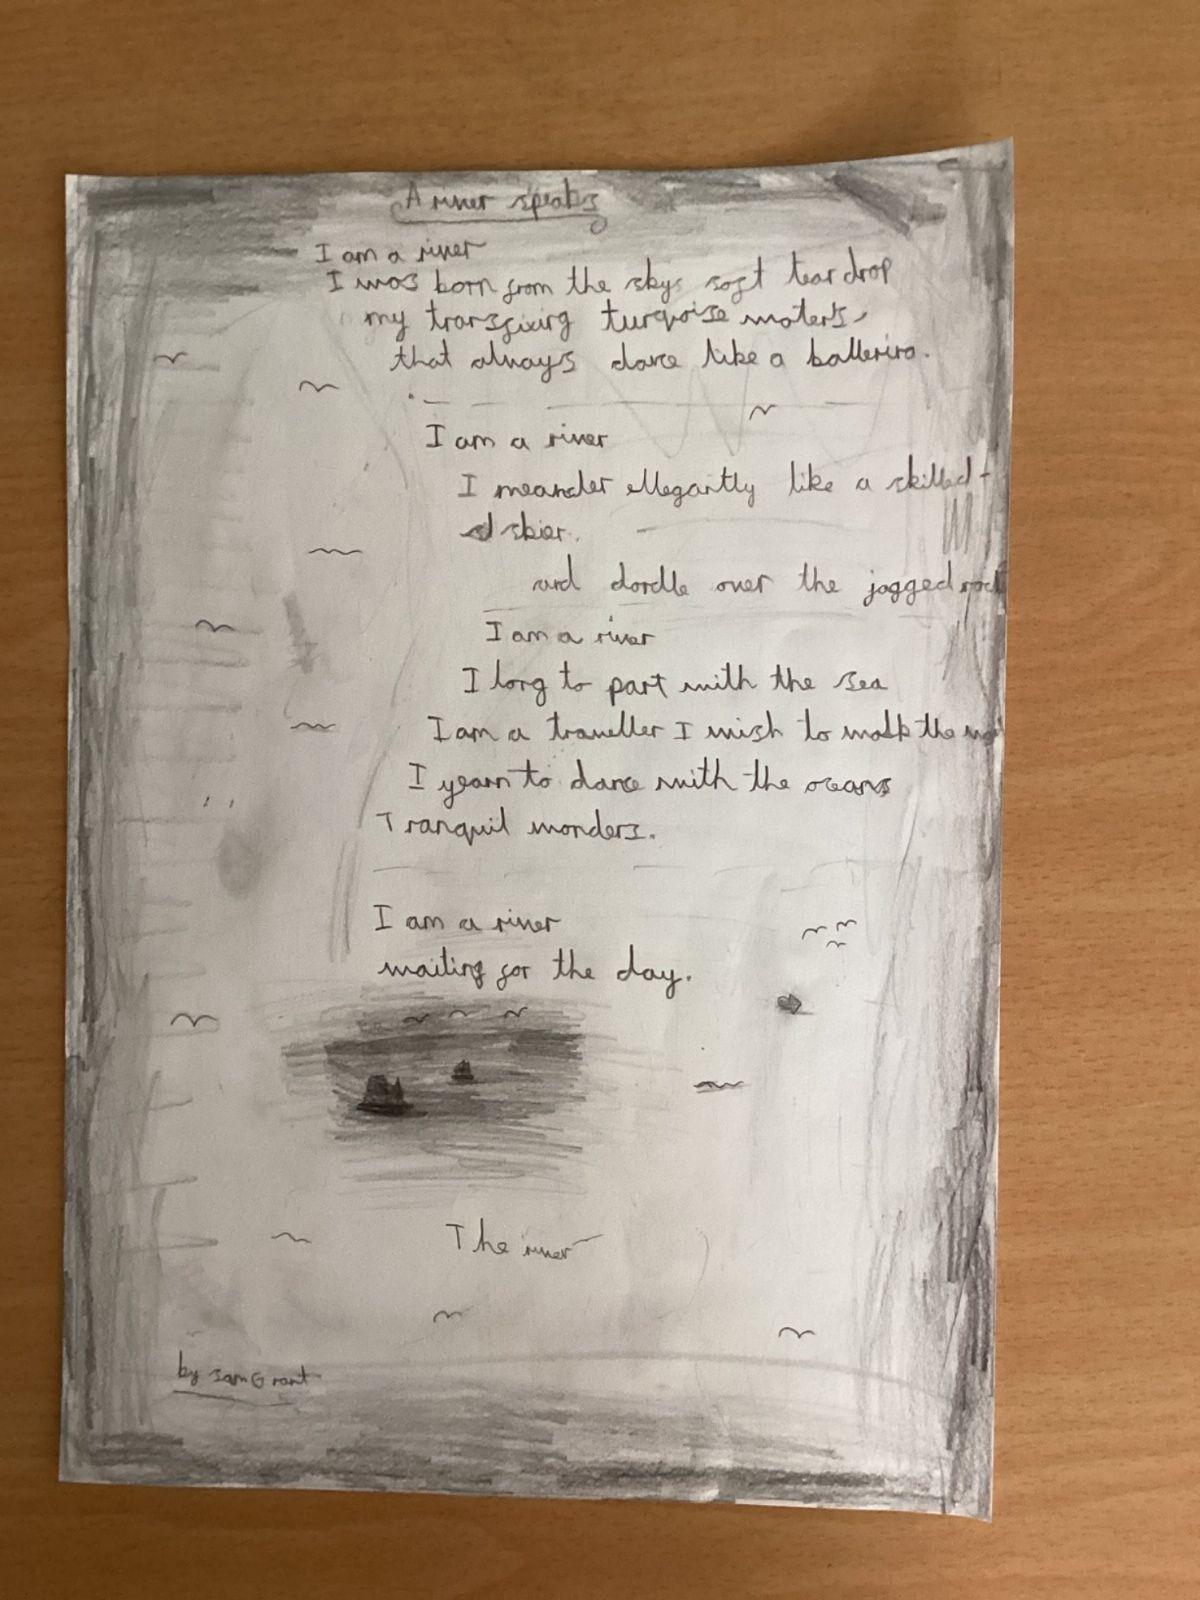 A river speaks
I am a river
I was born from the skys soft tear drop
my transfixing turquoise waters,
that always dance like a ballerina.
I am a river
I meander ellegantly like a skilled
skier.
and dordle over the jagged rock
I am a river
I long to part with the sea
I am a traveller I wish to walk the
I yearn to dance with the oceans
Tranquil wonders.
I am a river
waiting for the day.
The river
by Sam Grant